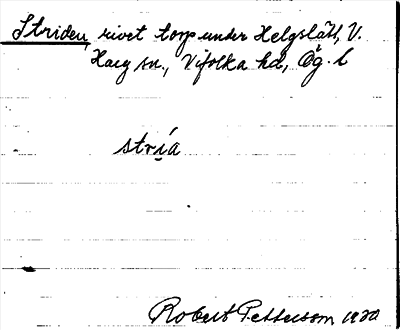 Striden, rivet torp under Helgslätt, V.
Harg sn., Vifolka hd, Ög. l
stría
Robert Petterson 1920